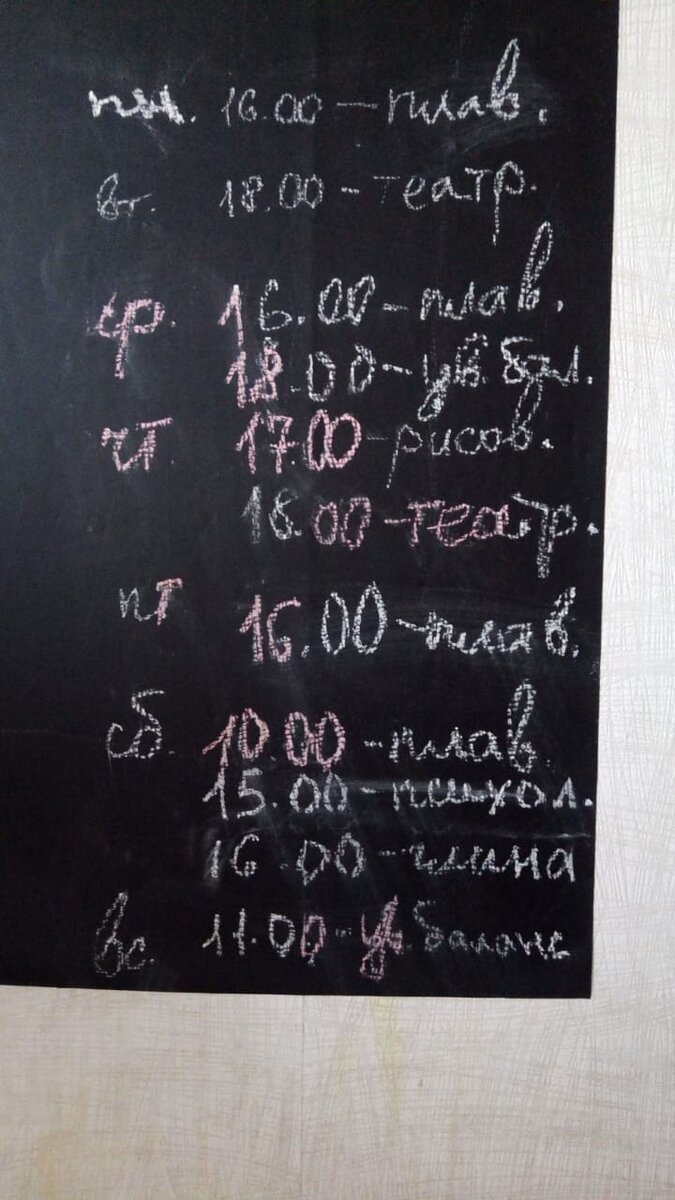 пн. 16.00 – плав.
вт. 18.00 – театр.
ср. 16.00 – плав.
18.00 – ув. бал.
чт. 17.00 – рисов.
18.00 – театр.
пт 16.00 – плав.
сб. 10.00 – плав.
15.00 – психол.
16.00 – глина
вс. 11.00 – ув. баланс